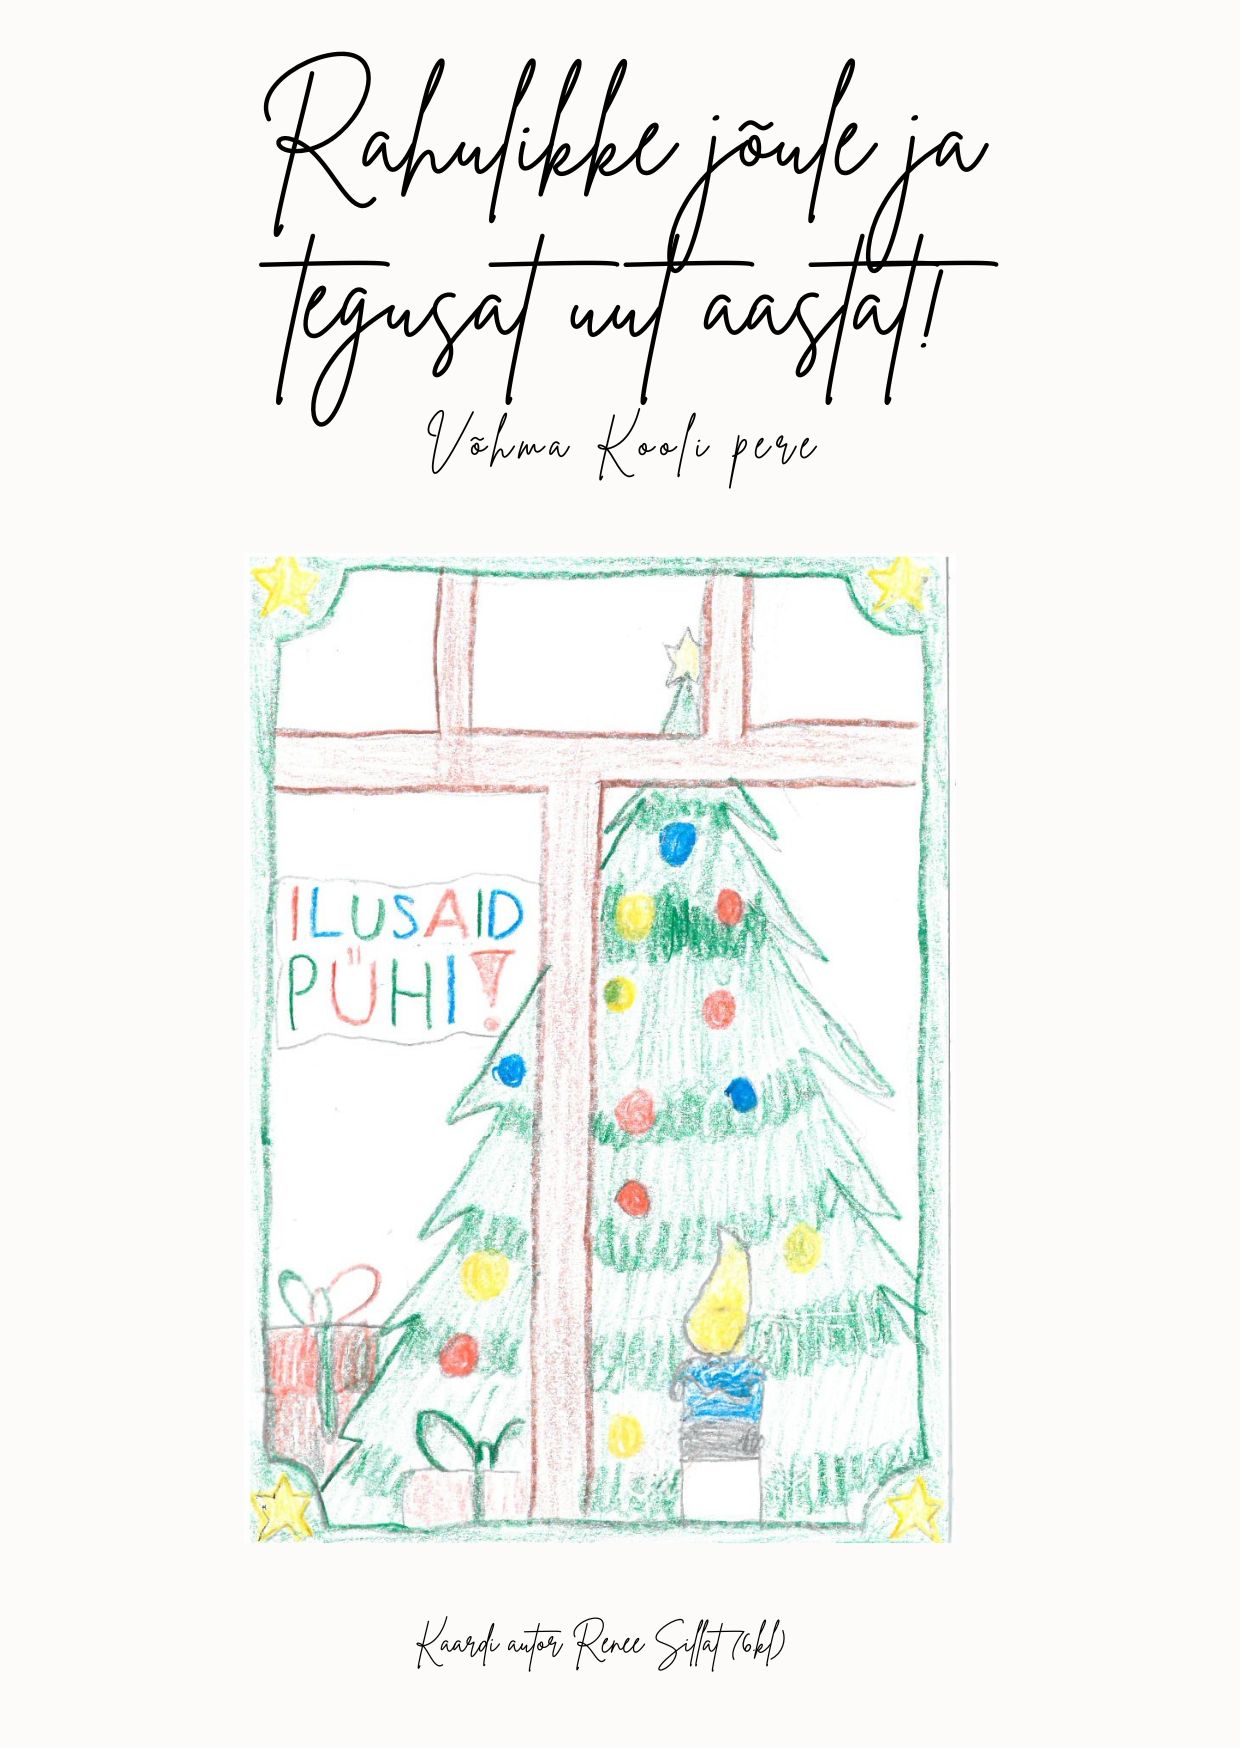 Rahulikke jõule ja
tegusat uut aastat!
Võhma Kooli pere
ILUSAID
PÜHI!
Kaardi autor Renee Sillat (6.kl)